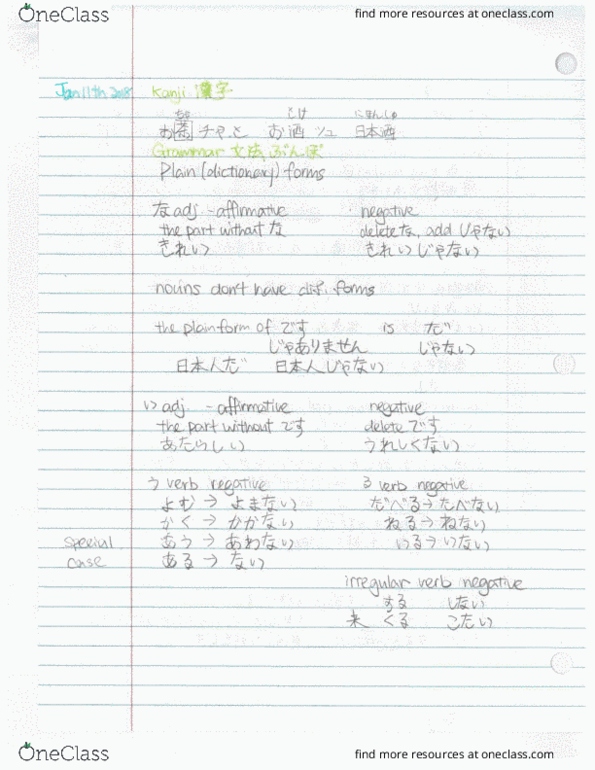 OneClass find more resources at oneclass.com
Jan 11th 2018 Kanji 漢字
ちゃ さけ にほんしゅ
お茶 チャ、さ お酒 シュ 日本酒
Grammar 文法 ぶんぽ
Plain (dictionary) forms
な adj. -affirmative negative
the part without な delete な, add じゃない
きれい きれいじゃない
nouns don't have dif. forms
the plain form of です is だ
じゃありません じゃない
日本人だ 日本人じゃない
い adj. -affirmative negative
the part without です delete です
あたらしい うれしくない
う verb negative る verb negative
よむ → よまない たべる → たべない
かく → かかない ねる → ねない
special あう → あわない いる → いない
case ある → ない
irregular verb negative
する しない
来 くる こない
OneClass find more resources at oneclass.com